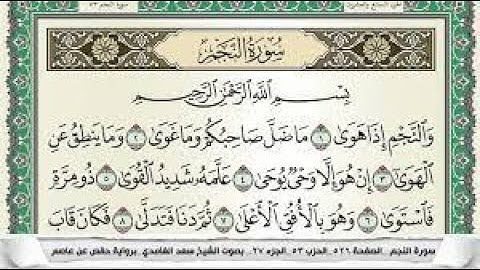 سورة النجم ٥٣
الجزء السابع والعشرون
سُورَةُ النَّجْمِ
بِسْمِ اللَّهِ الرَّحْمَٰنِ الرَّحِيمِ
وَالنَّجْمِ إِذَا هَوَىٰ ١ مَا ضَلَّ صَاحِبُكُمْ وَمَا غَوَىٰ ٢ وَمَا يَنطِقُ عَنِ
الْهَوَىٰ ٣ إِنْ هُوَ إِلَّا وَحْيٌ يُوحَىٰ ٤ عَلَّمَهُ شَدِيدُ الْقُوَىٰ ٥ ذُو مِرَّةٍ
فَاسْتَوَىٰ ٦ وَهُوَ بِالْأُفُقِ الْأَعْلَىٰ ٧ ثُمَّ دَنَا فَتَدَلَّىٰ ٨ فَكَانَ قَابَ
سورة النجم _ الصفحة ٥٢٦ _ الحزب ٥٣ _ الجزء ٢٧ _ بصوت الشيخ سعد الغامدي _ برواية حفص عن عاصم